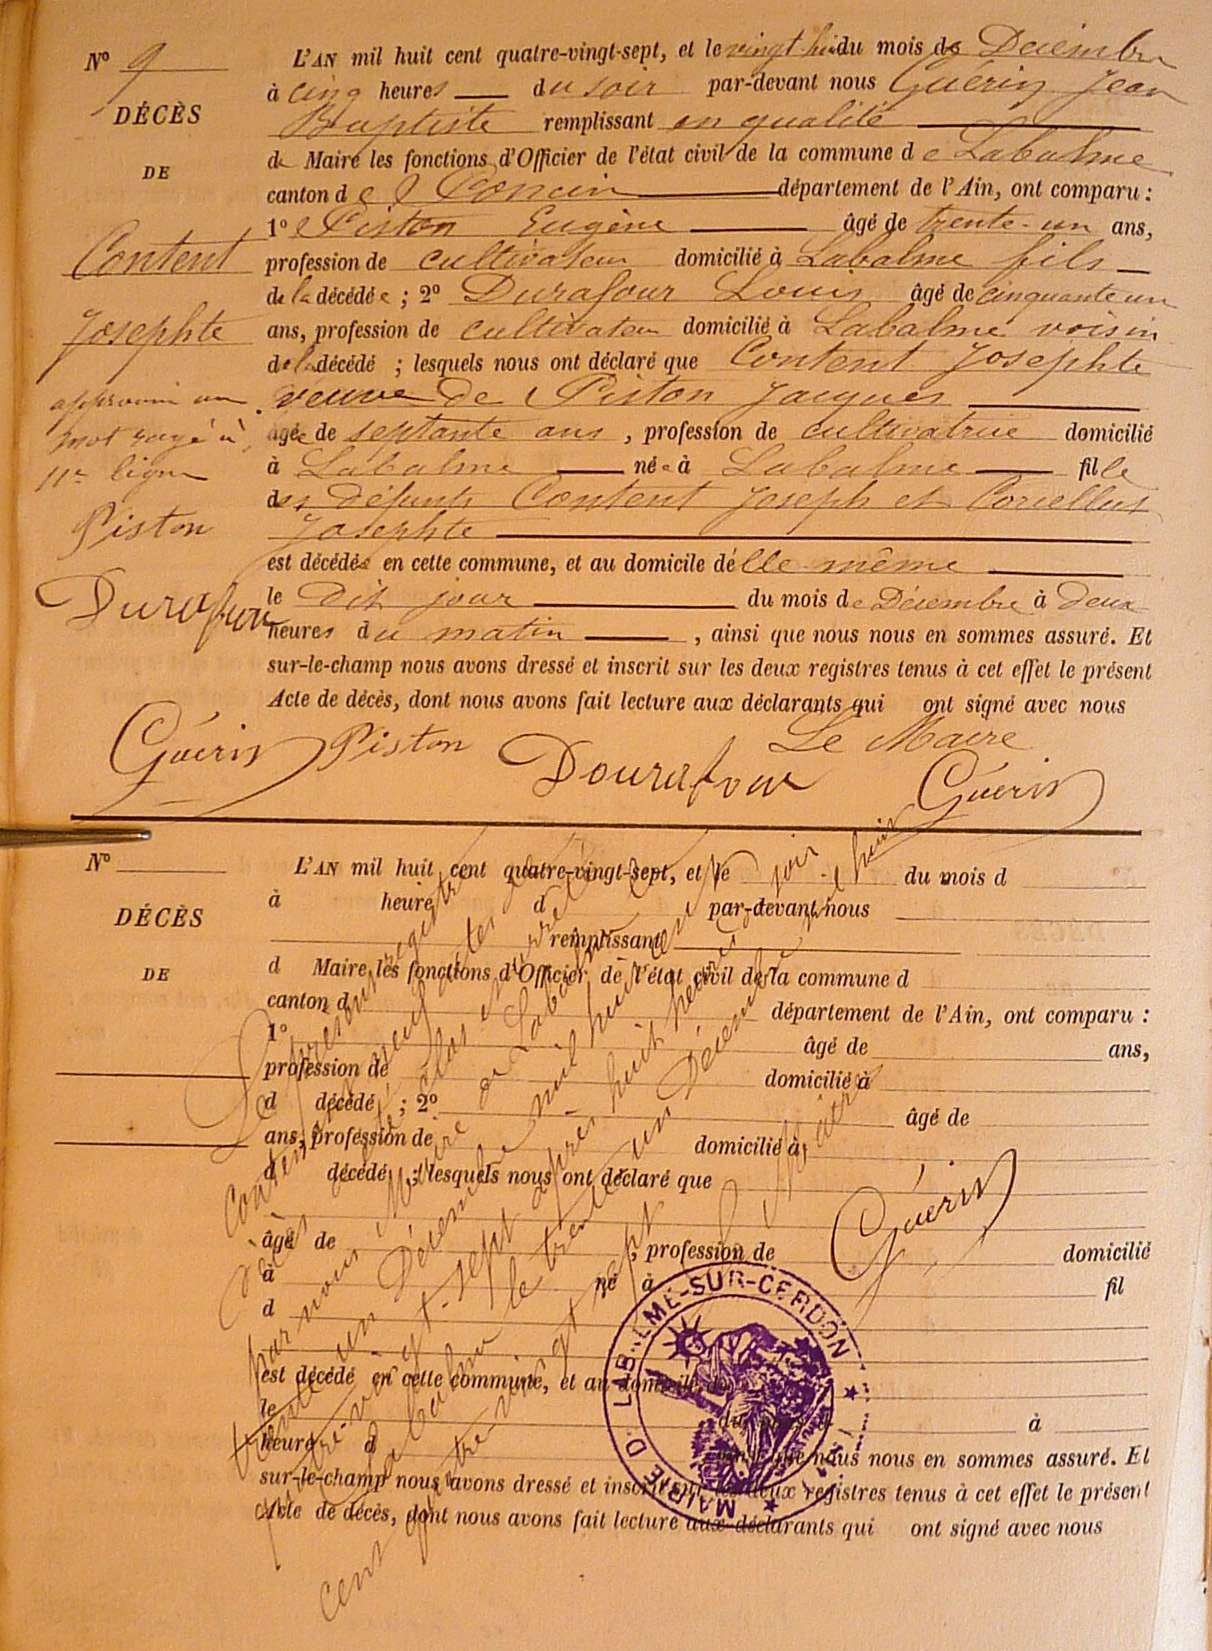 N° 9
DÉCÈS
DE
Content
Josephte
approuvé un
mot rayé à
11e ligne
Piston
Durafour
L'AN mil huit cent quatre-vingt-sept, et le vingt huit du mois de Décembre
à cinq heures du soir par-devant nous Guérin Jean
Baptiste remplissant en qualité
de Maire les fonctions d'Officier de l'état civil de la commune de Labalme
canton de Poncin département de l'Ain, ont comparu :
1° Piston Eugène âgé de trente-un ans,
profession de cultivateur domicilié à Labalme fils
de la décédée ; 2° Durafour Louis âgé de cinquante un
ans, profession de cultivateur domicilié à Labalme voisin
de la décédé ; lesquels nous ont déclaré que Content Josephte
veuve de Piston Jacques
agée de septante ans, profession de cultivatrice domicilié
à Labalme née à Labalme fille
des défunts Content Joseph et
Josephte
est décédée en cette commune, et au domicile d'elle même
le dit jour du mois de Décembre à deux
heures du matin, ainsi que nous nous en sommes assuré. Et
sur-le-champ nous avons dressé et inscrit sur les deux registres tenus à cet effet le présent
Acte de décès, dont nous avons fait lecture aux déclarants qui ont signé avec nous
Le Maire
Guérin Piston Dourafour Guérin
N°
DÉCÈS
DE
L'AN mil huit cent quatre-vingt-sept, et le du mois d
à heure d par-devant nous
remplissant
d Maire les fonctions d'Officier de l'état civil de la commune d
canton d département de l'Ain, ont comparu :
1° âgé de ans,
profession de domicilié à
d décédé ; 2° âgé de
ans, profession de domicilié à
d décédé ; lesquels nous ont déclaré que
âgé de , profession de domicilié
à né à fil
d
est décédé en cette commune, et au domicile de
le du mois d à
heure d ainsi que nous nous en sommes assuré. Et
sur-le-champ nous avons dressé et inscrit sur les deux registres tenus à cet effet le présent
Acte de décès, dont nous avons fait lecture aux déclarants qui ont signé avec nous
Le présent registre
contenant neuf actes de
décès a été clos et arrêté
par nous Maire de Labalme le
trente un Décembre mil huit cent
quatre-vingt-sept après huit heures du soir
Labalme le trente un Décembre mil huit
cent quatre vingt sept
Le Maire
Guérin
MAIRIE D LABALME-SUR-CERDON